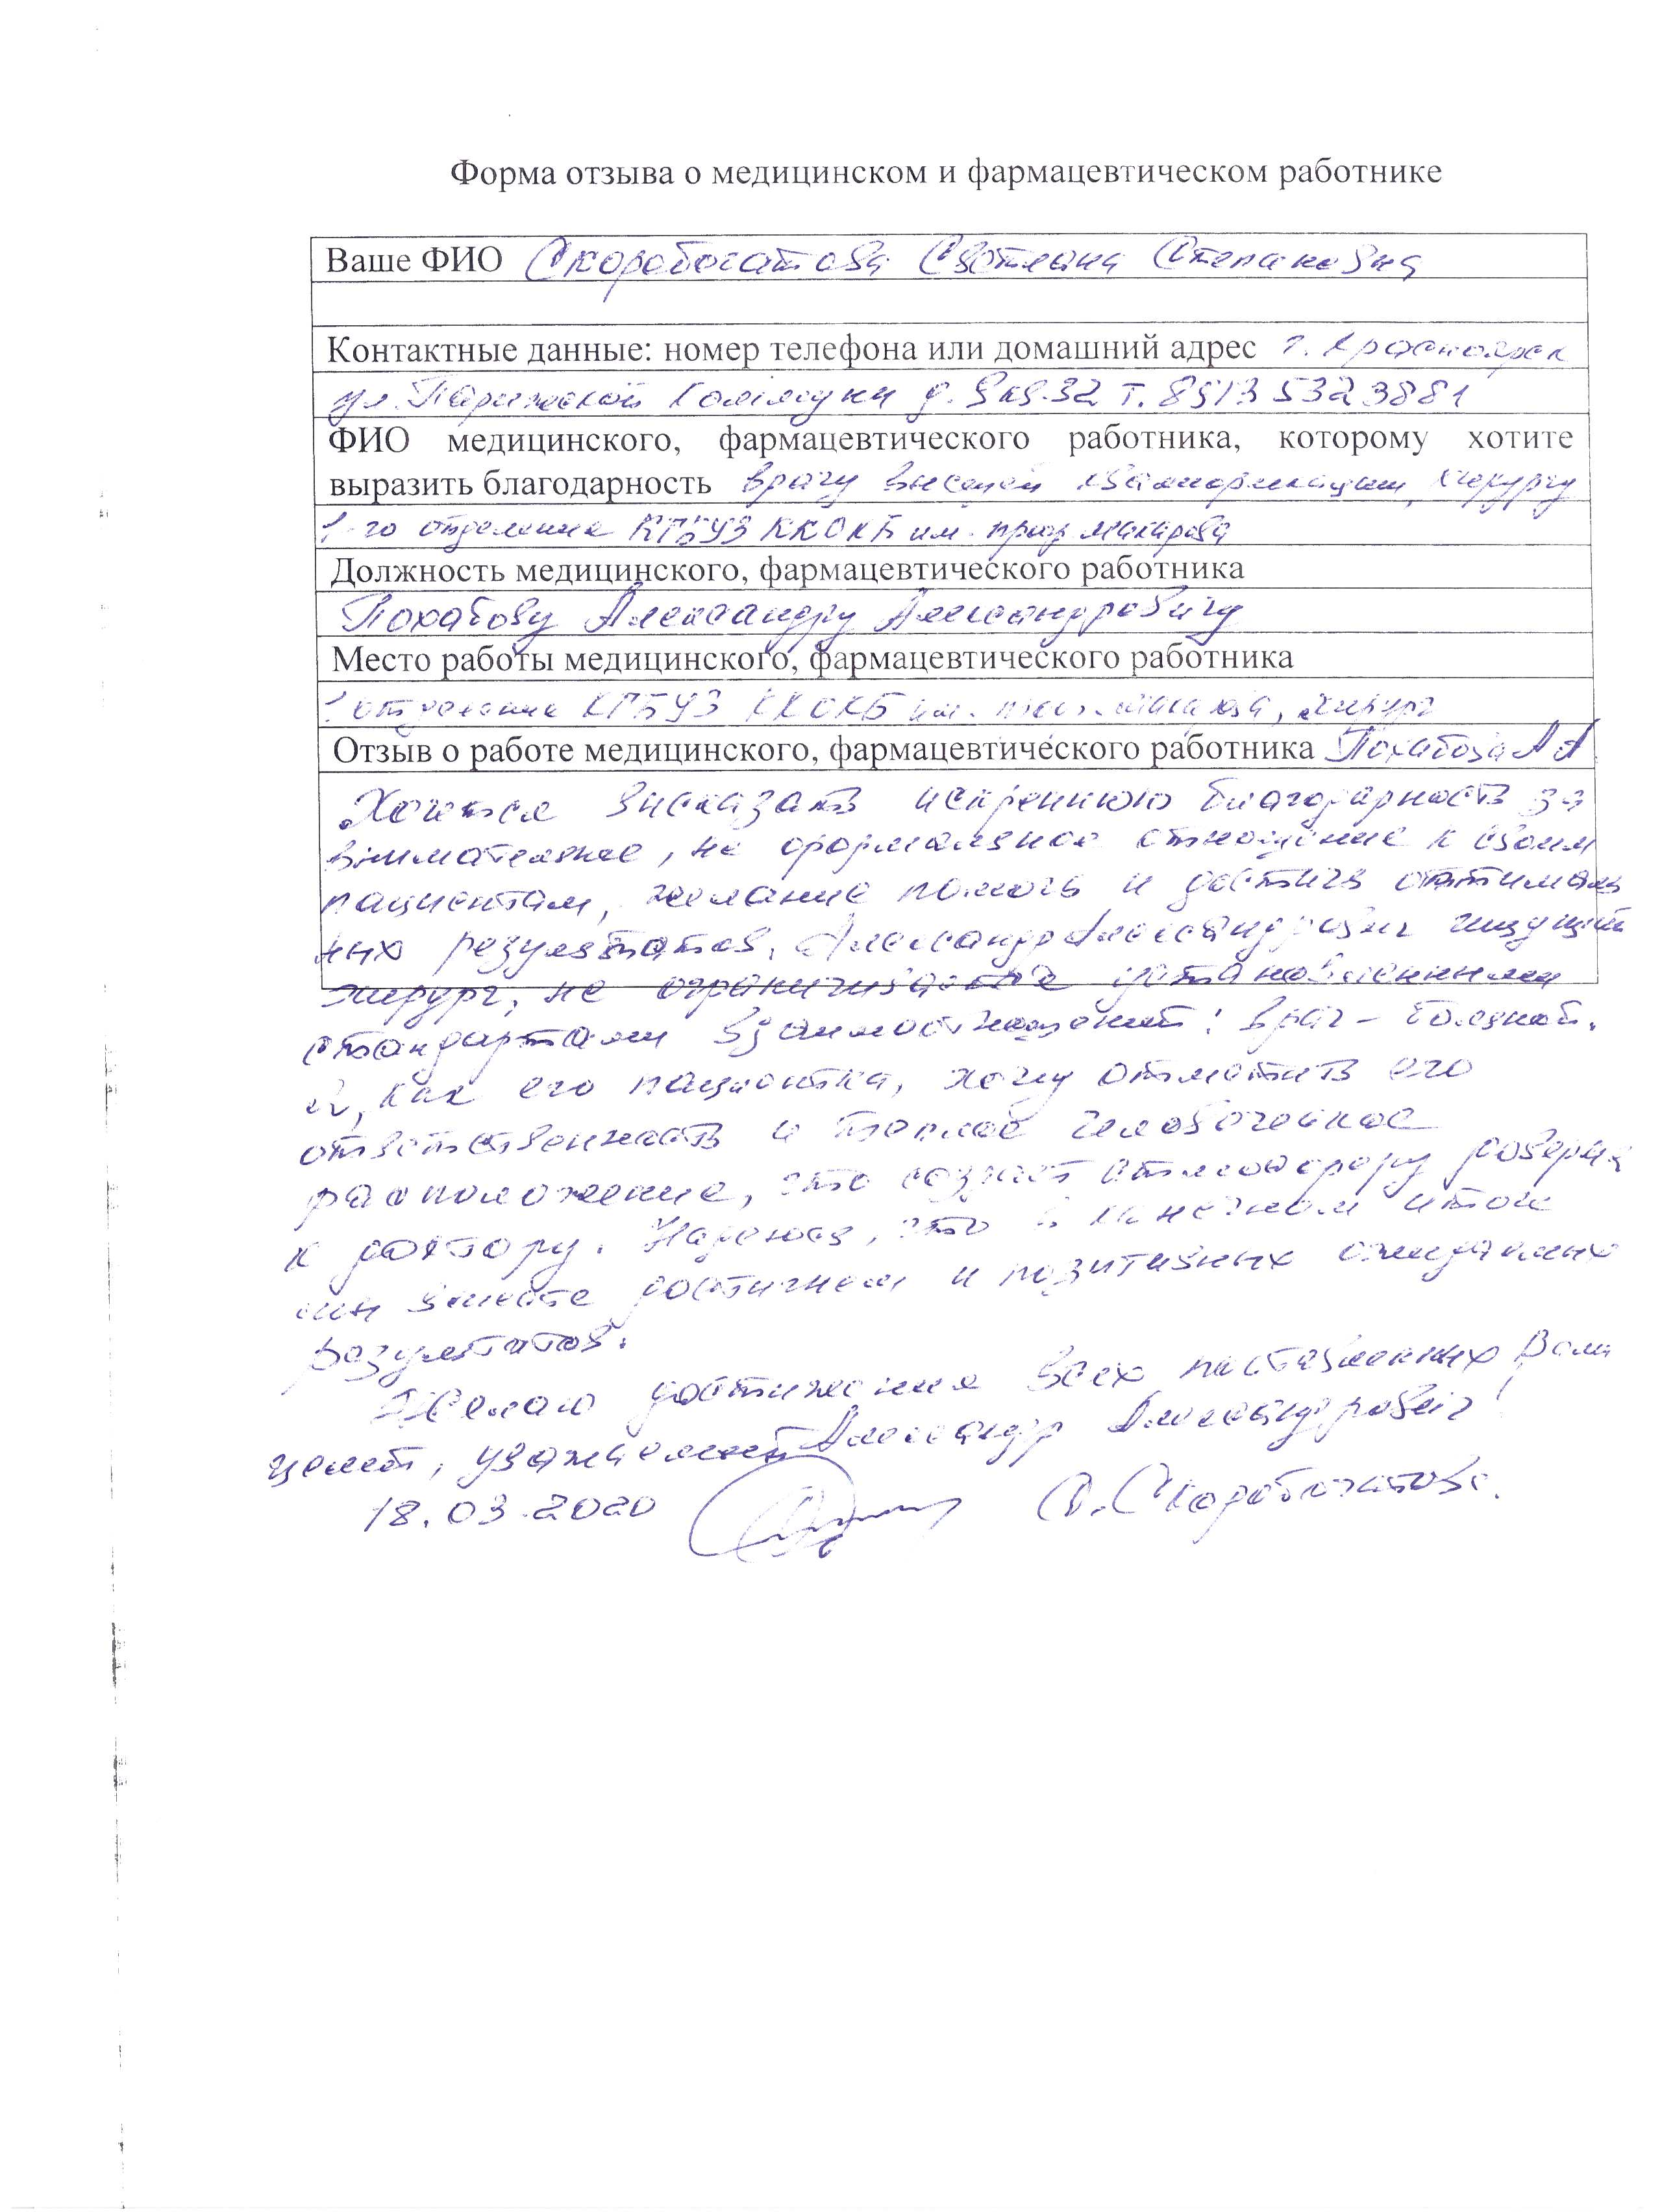 Форма отзыва о медицинском и фармацевтическом работнике
Ваше ФИО Скоробогатова Светлана Степановна
Контактные данные: номер телефона или домашний адрес г. Красноярск
ул. Парижской Коммуны д. 9 кв. 32 т. 8913 532 3881
ФИО медицинского, фармацевтического работника, которому хотите
выразить благодарность врачу высшей квалификации, хирургу
1-го отделения КГБУЗ ККОКБ им. проф Макарова
Должность медицинского, фармацевтического работника
Похабову Александру Александровичу
Место работы медицинского, фармацевтического работника
1 отделение КГБУЗ ККОКБ им. проф. Макарова, хирург
Отзыв о работе медицинского, фармацевтического работника Похабова А А
Хочется высказать искреннюю благодарность за
внимательное, не формальное отношение к своим
пациентам, желание помочь и достичь оптималь
ных результатов. Александр Александрович ищущий
хирург, не ограничивается установленными
стандартами взаимоотношений: врач - больной.
Я, как его пациентка, хочу отметить его
ответственность и теплое человеческое
расположение, что создает атмосферу доверия
к доктору. Надеюсь, что в конечном итоге
мы вместе достигнем и позитивных ожидаемых
результатов.
Желаю достижения всех поставленных Вами
целей, уважаемый Александр Александрович!
18.03.2020 С. Скоробогатова.